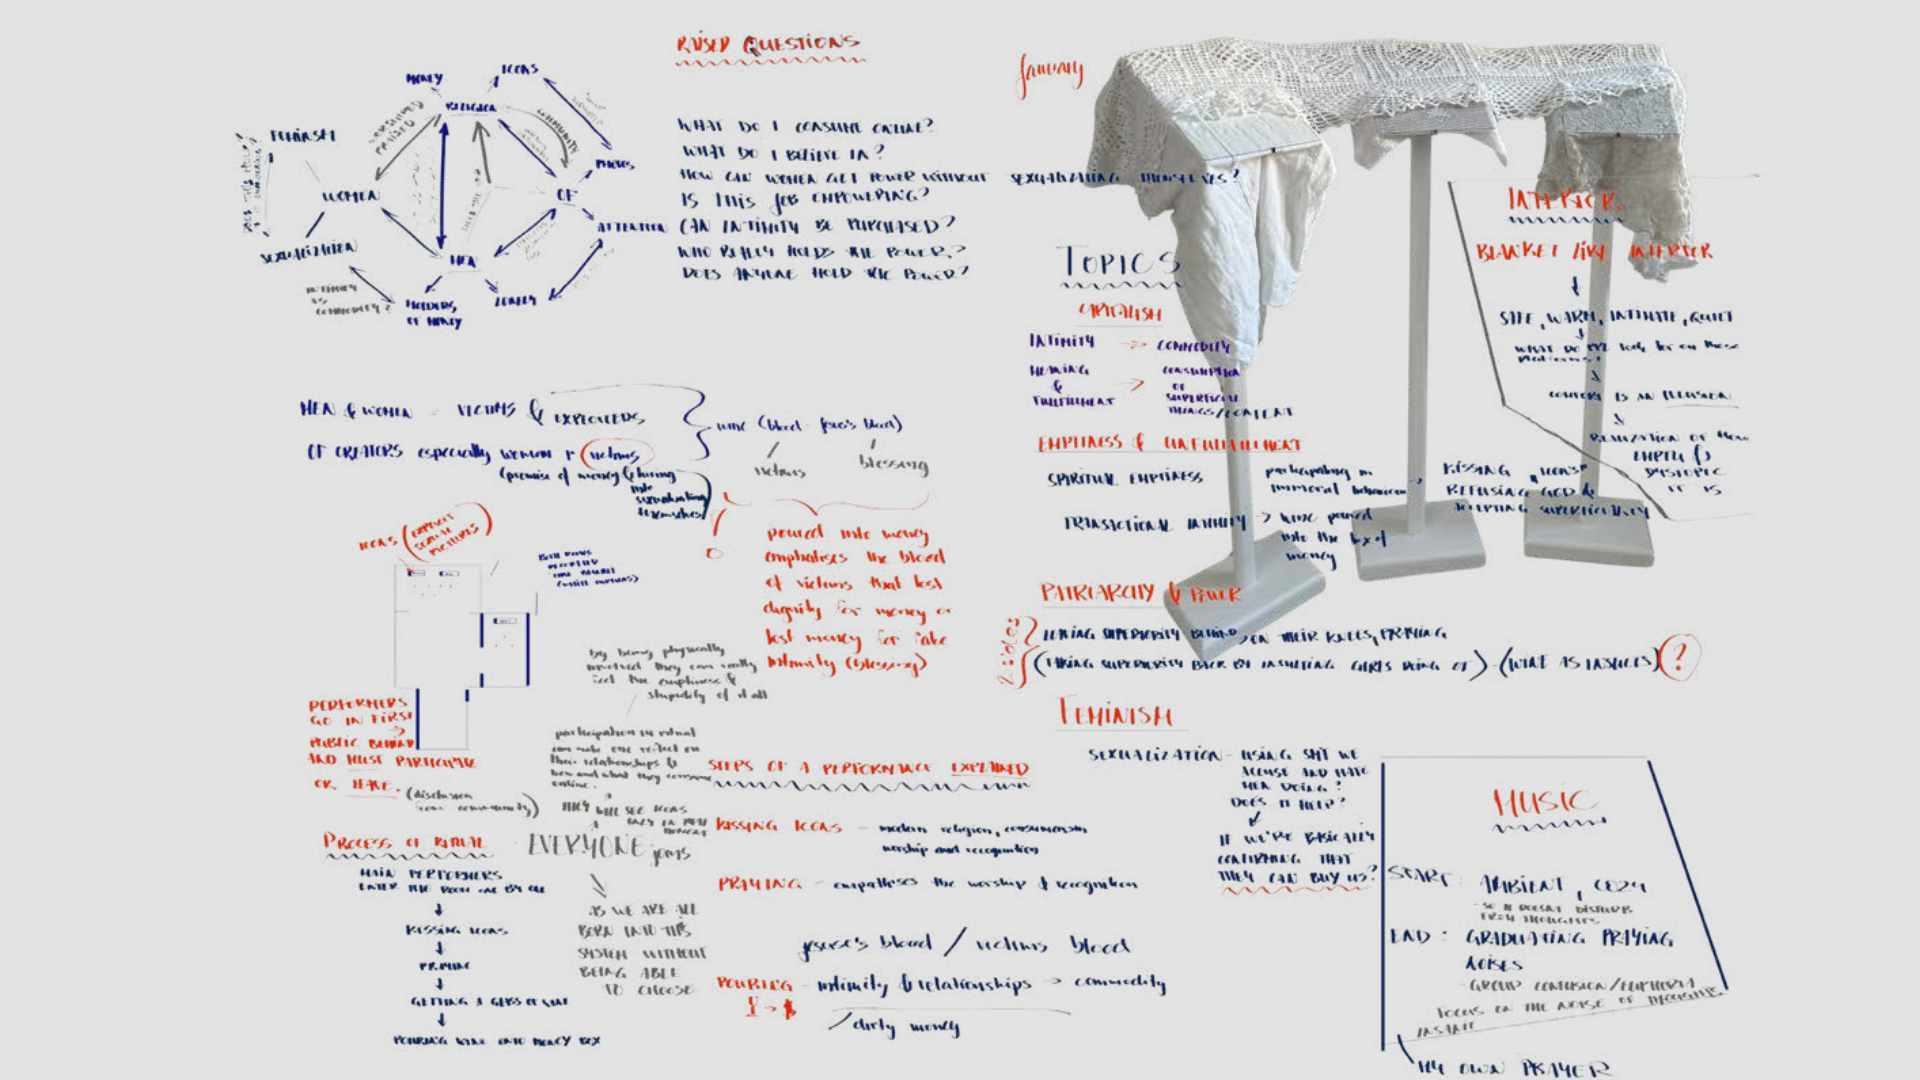 RAISED QUESTIONS
WHAT DO I CONSUME ONLINE?
WHAT DO I BELIEVE IN?
HOW CAN WOMEN GET POWER WITHOUT SEXUALIZING THEMSELVES?
IS THIS JOB EMPOWERING?
CAN INTIMITY BE PURCHASED?
WHO REALLY HOLDS THE POWER?
DOES ANYONE HOLD THE POWER?
MONEY
ICONS
RELIGION
FEMINISM
COMMUNITY
PHOTOS
WOMEN
OF
ATTENTION
SEXUALIZATION
MEN
INTIMITY
AS
COMMODITY?
HOLDERS
OF MONEY
LONELY
MEN & WOMEN - VICTIMS & EXPLOITEDS
OF CREATORS especially women → victims
(promise of money & luring
into
sexualizing
themselves)
wine (blood - jesus's blood)
victims
blessing
poured into money
emphatises the blood
of victims that lost
dignity for money or
lost money for fake
intimity (blessing)
ICONS (EXPLICIT
SEXUAL
PICTURES)
PERFORMERS
GO IN FIRST
PUBLIC BEHIND
AND MUST PARTICIPATE
OR LEAVE.
by being physically
involved they can really
feel the emptiness &
stupidity of it all
participation in ritual
can make one reflect on
their relationships &
how and what they consume
online.
THEY WILL SEE ICONS
ONLY IN THAT
MOMENT
EVERYONE joins
AS WE ARE ALL
BORN INTO THIS
SYSTEM WITHOUT
BEING ABLE
TO CHOOSE
PROCESS OF RITUAL
MAIN PERFORMERS
ENTER THE ROOM ONE BY ONE
KISSING ICONS
PRAYING
GETTING A GLASS OF WINE
POURING WINE INTO MONEY BOX
STEPS OF A PERFORMANCE EXPLAINED
KISSING ICONS - modern religion, consumerism
worship and recognition
PRAYING - emphatises the worship & recognition
jesuse's blood / victims blood
POURING - intimity & relationships → commodity
→ $
/ dirty money
January
TOPICS
CAPITALISM
INTIMITY → COMMODITY
MEANING
&
FULFILLMENT
→ CONSUMPTION
OF
SUPERFICIAL
THINGS/CONTENT
EMPTINESS & UNFULFILLMENT
SPIRITUAL EMPTINESS
participating in
immoral behaviour →
KISSING "ICONS"
REFUSING GOD &
ACCEPTING SUPERFICIALITY
TRANSACTIONAL INTIMITY → wine poured
into the box of
money
PATRIARCHY & POWER
2 sides
LEAVING SUPERIORITY BEHIND, ON THEIR KNEES, PRAYING
(TAKING SUPERIORITY BACK BY INSULTING GIRLS DOING OF) - (WINE AS INSULTS) ?
FEMINISM
SEXUALIZATION - USING SHIT WE
ACCUSE AND HATE
MEN DOING?
DOES IT HELP?
IF WE'RE BASICALLY
CONFIRMING THAT
THEY CAN BUY US?
INTERIOR
BLANKET LIKE INTERIOR
SAFE, WARM, INTIMATE, QUIET
WHAT DO look for on these
platforms?
COMFORT IS AN ILLUSION
REALIZATION OF HOW
EMPTY &
DYSTOPIC
IT IS
MUSIC
START: AMBIENT,
- SO IT DOESN'T DISTURB
FROM THOUGHTS
END: GRADUATING PRAYING
NOISES
- GROUP CONFUSION/EUPHORIA
FOCUS ON THE NOISE OF THOUGHTS
INSANE
MY OWN PRAYER